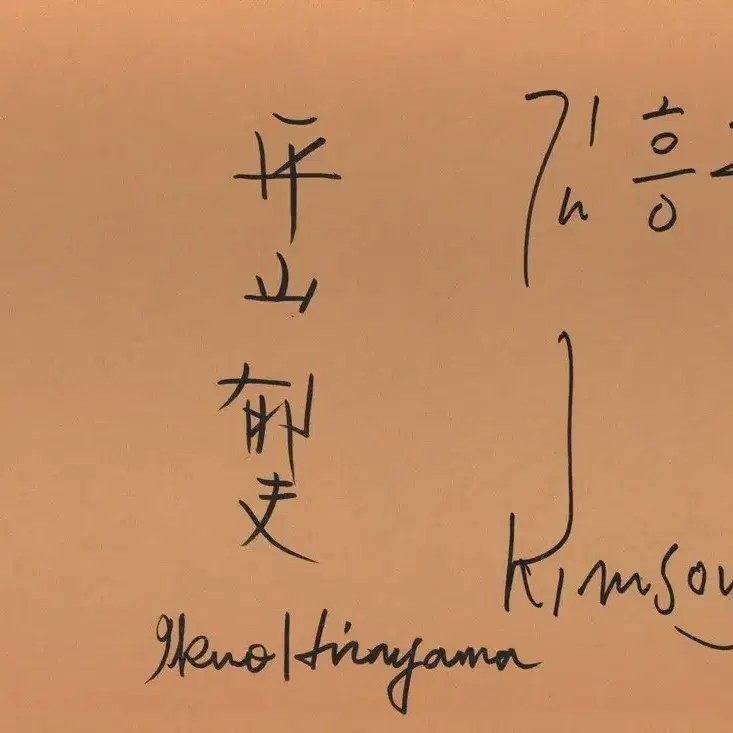 平山
郁夫
Ikuo Hirayama
김흥
Kimsou